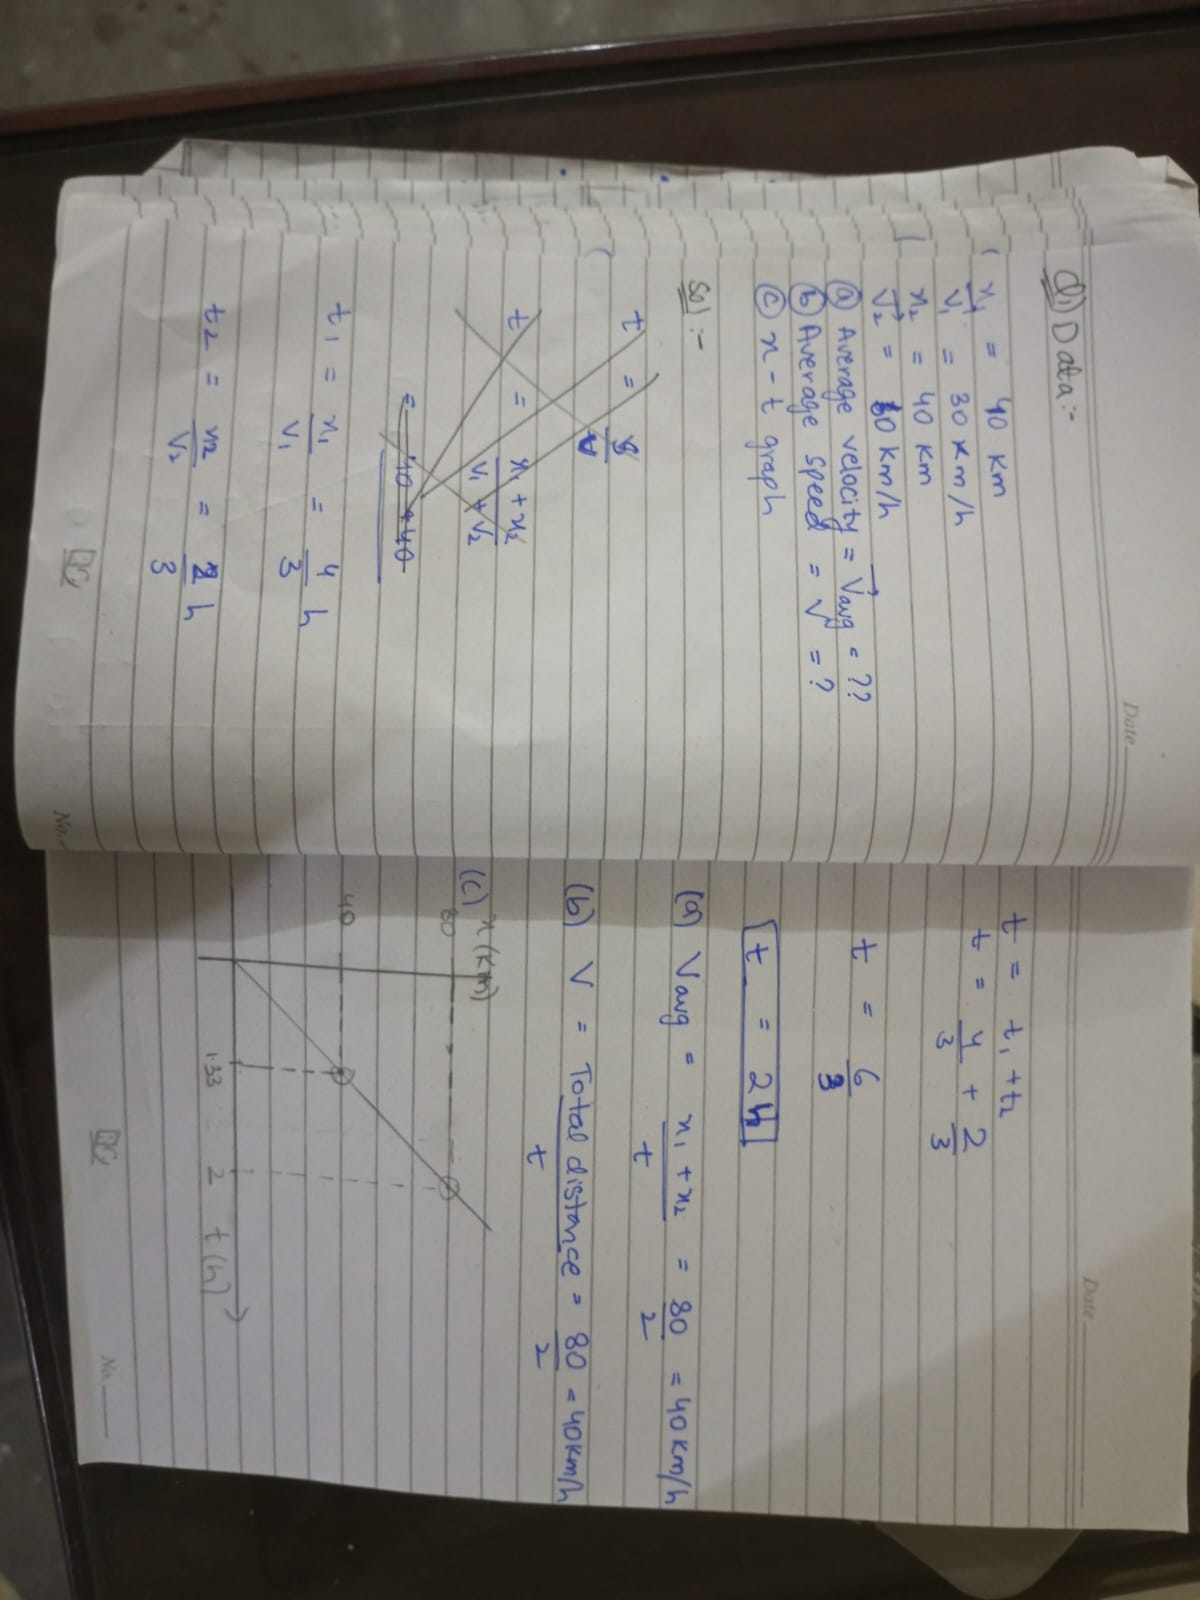 Date
Q1) Data :-
x₁ = 40 km
V₁ = 30 km/h
x₂ = 40 km
V₂ = 60 km/h
(a) Average velocity = Vavg = ??
(b) Average speed = V = ?
(c) x - t graph
Sol :-
t = S/V
t = x₁ + x₂ / V₁ + V₂
= 40 + 40
t₁ = x₁/V₁ = 4/3 h
t₂ = x₂/V₂ = 2/3 h
No.
Date
t = t₁ + t₂
t = 4/3 + 2/3
t = 6/3
t = 2h
(a) Vavg = x₁ + x₂ / t = 80/2 = 40 km/h
(b) V = Total distance / t = 80/2 = 40 km/h
(c) x (km)
80
40
1.33 2 t (h)
No.